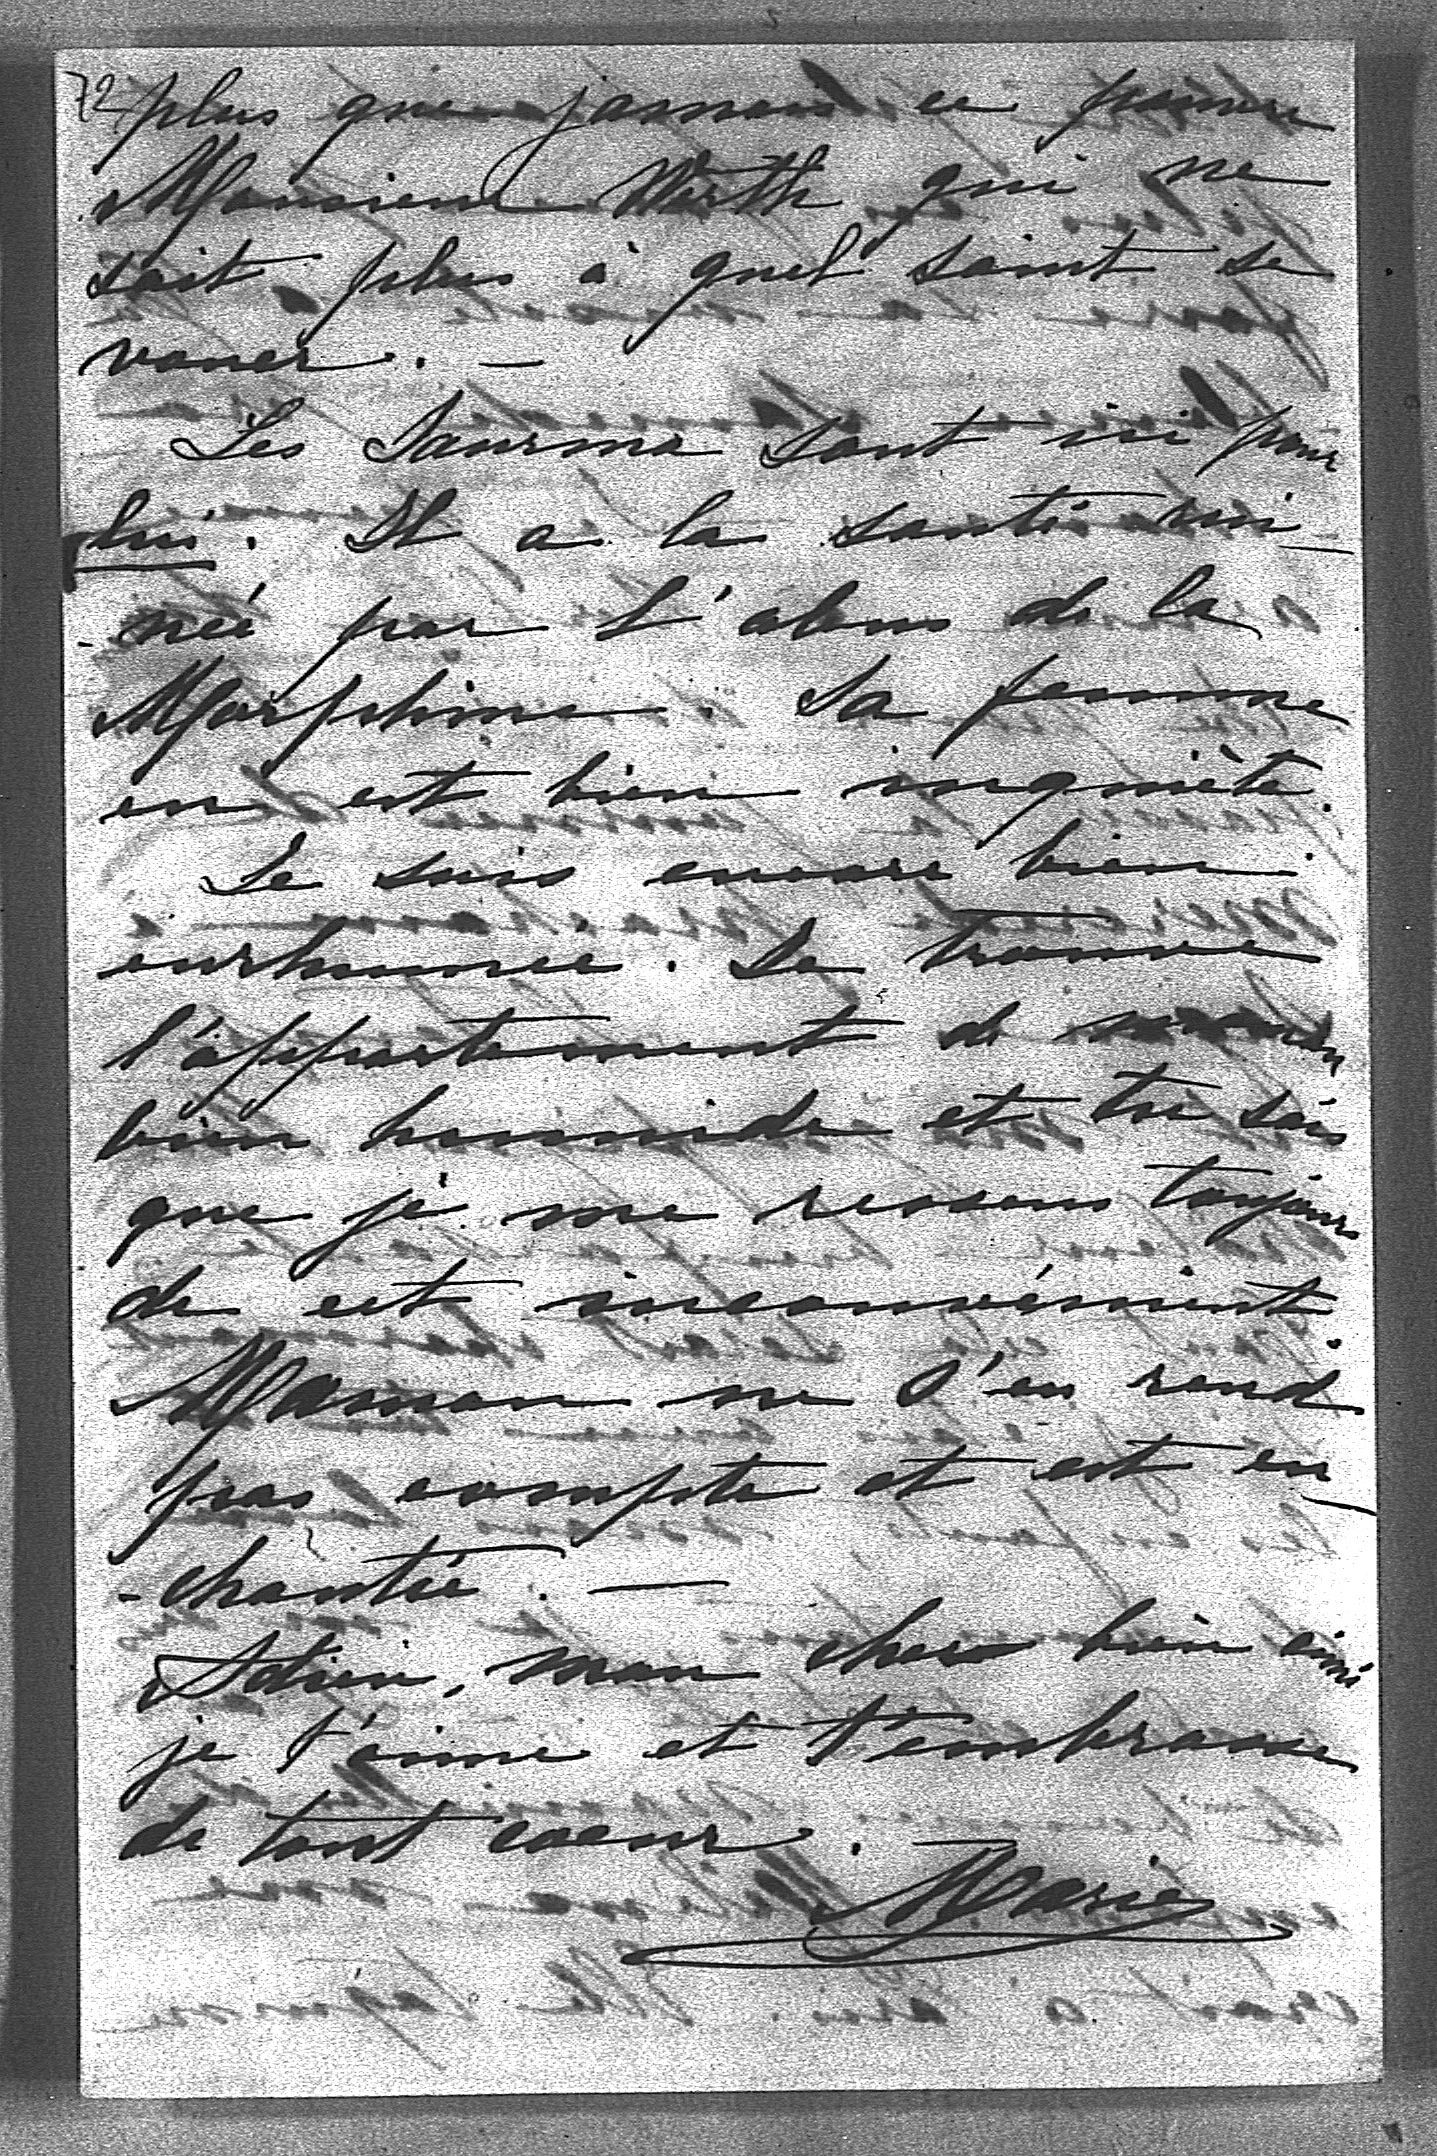 72 plus que jamais ce pauvre
Monsieur Worth qui ne
sait plus à quel saint se
vouer. —
Les Saurma sont ici pour
lui. Il a la santé rui-
-née par l'abus de la
Morphine. Sa femme
en est bien inquiète.
Je suis encore bien
enrhumée. Je trouve
l'appartement de maman
bien humide et tu sais
que je me ressens toujours
de cet inconvénient.
Maman ne s'en rend
pas compte et est en-
-chantée. —
Adieu, mon cher bien aimé
je t'aime et t'embrasse
de tout coeur.
Marie